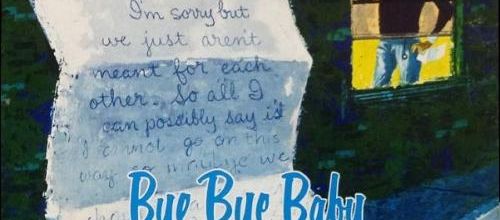 I'm sorry but
we just aren't
meant for each
other. So all I
can possibly say is
I cannot go on this
way so we
Bye Bye Baby